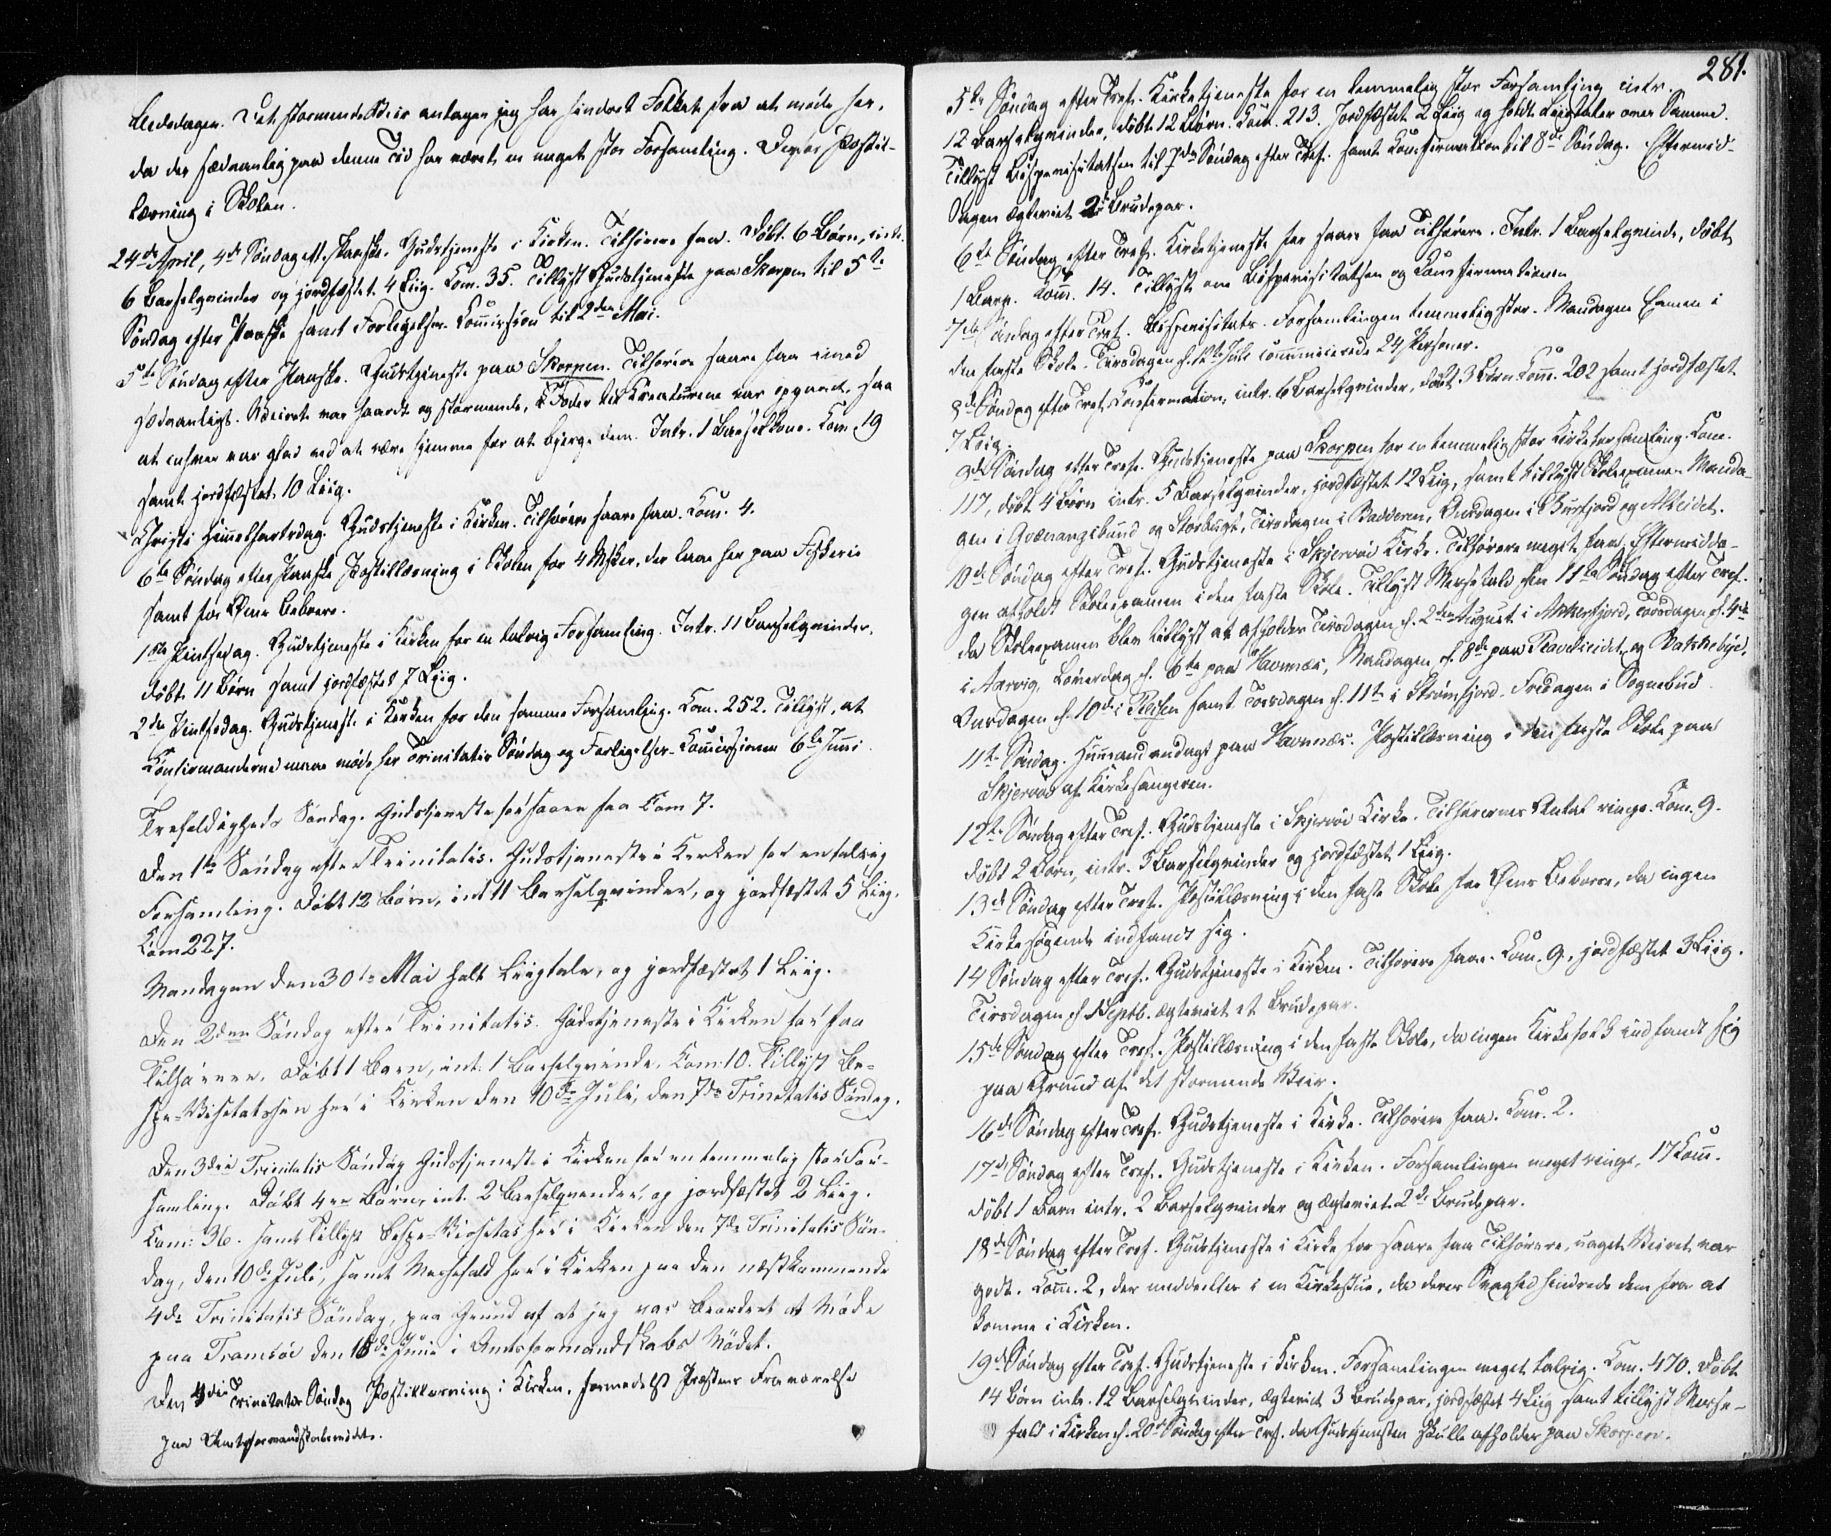 Bededagen. Det stormende Veir antager jeg har hindret Folket fra at møde her,
da der sædvanlig paa denne Tid har været en meget stor Forsamling. Derfor Postil-
læsning i Skolen.
24de April, 4de Søndag eft. Paaske. Gudstjeneste i Kirken. Tilhørere faa. Døbt 6 Børn, intr.
6 Barselqvinder og jordfæstet 4 Liig. Com. 35. Tillyst Gudstjeneste paa Skorpen til 5te
Søndag efter Paaske samt Forligelses-Commission til 2den Mai.
5te Søndag efter Paaske. Gudstjeneste paa Skorpen. Tilhørere saare faa imod
sædvanligt. Veiret var haardt og stormende, & Foder til Kreaturene var opgaaet, saa
at enhver var glad ved at være hjemme for at bjerge dem. Intr. 1 Barselkone. Com. 19
samt jordfæstet 10 Liig.
Christi Himmelfartsdag. Gudstjeneste i Kirken. Tilhørere saare faa. Com. 4.
6te Søndag efter Paaske Postillæsning i Skolen for 4 Msker, der laae her paa Fiskerie
samt for Øens Beboere.
1ste Pintsedag. Gudstjeneste i Kirken for en talrig Forsamling. Intr. 11 Barselqvinder,
døbt 11 Børn samt jordfæstet 7 Liig.
2den Pintsedag. Gudstjenest. i Kirken for den samme Forsamling. Com. 252. Tillyst, at
Confirmanderne maae møde her Trinitatis Søndag og Forligelses-Commissionen 6te Juni.
Trefoldigheds Søndag. Gudstjeneste for saare faa Com 7.
Den 1te Søndag efter Trinitatis. Gudstjeneste i Kirken for en talrig
Forsamling. Døbt 12 Børn, int 11 Barselqvinder, og jordfæstet 5 Liig.
Com 227.
Mandagen den 30te Mai holt Liigtale, og jordfæstet 1 Liig.
Den 2den Søndag efter Trinitatis. Gudstjeneste i Kirken for faa
Tilhørere. Døbt 1 Barn, int. 1 Barselqvinde. Com: 10. Tillyst Be-
spe-Visetatsen her i Kirken den 10de Juli, den 7de Trinitatis Søndag.
Den 3die Trinitatis Søndag Gudstjeneste i Kirken for en temmelig stor For-
samling. Døbt 4re Børn, int. 2 Barselqvinder, og jordfæstet 2 Liig.
Com: 36. samt Tillyst Bespe-Visetas her i Kirken den 7de Trinitatis Søn-
dag, den 10de Juli, samt Messefald her i Kirken paa den næstkommende
4de Trinitatis Søndag, paa Grund af at jeg var beordret at Møde
paa Tromsøe den 18de Junie i Amtsformandskabs Mødet.
Den 4die Trinitatis Søndag Postillæsning i Kirken, formedelst Præstens Fraværelse
paa Amtsformandskabsmødet.
281.
5te Søndag efter Tref. Kirketjeneste for en temmelig stor Forsamling intr.
12 Barselqvinder, døbt 12 Børn. Com. 213. Jordfæstet 2 Liig og holdt Liigtaler over Samme.
Tillyst Bispevisitatsen til 7de Søndag efter Tref. samt Confirmation til 8de Søndag. Eftermid-
dagen ægteviet 2de Brudepar.
6te Søndag efter Tref. Kirketjeneste for saare faa Tilhørere. Intr. 1 Barselqvinde, døbt
1 Barn. Com. 14. Tillyste om Bispevisitatsen og Confirmationen
7de Søndag efter Tref. Bispevisitats. Forsamlingen temmelig stor. Mandagen Examen i
den faste Skole. Tirsdagen d. 12te Juli communicerede 24 Personer.
8de Søndag efter Tref. Confirmation, intr. 6 Barselqvinder, døbt 3 Børn Com. 202 samt jordfæstet
7 Liig.
9de Søndag efter Tref. Gudstjeneste paa Skorpen for en temmelig stor Kirkeforsamling. Com.
117, døbt 4 Børn intr. 5 Barselqvinder, jordfæstet 12 Liig, samt tillyst Skoleexamen Manda-
gen i Qvænangsbund og Storbugt, Tirsdagen i Badderen, Onsdagen i Bursfjord og Alteidet.
10de Søndag efter Tref. Gudstjeneste i Skjervøe Kirke. Tilhørere meget faa. Eftermidda-
gen afholdt Skoleexamen i den faste Skole. Tillyst Messefald den 11te Søndag efter Tref.
da Skoleexamen blev tillyst at afholdes Tirsdagen d. 2den August i Akkerfjord, Torsdagen d. 4de
i Aarvig, Løverdag d. 6te paa Havnnæs, Mandagen d. 8de paa Ravelseidet og Bakkebye,
Onsdagen d. 10de i Reisen samt Torsdagen d. 11te i Strømfjord. Fredagen i Sognebud
11te Søndag. Huusandagt paa Havnnæs. Postillæsning i den faste Skole paa
Skjervøe af Kirkesangeren.
12te Søndag efter Tref. Gudstjeneste i Skjervøe Kirke. Tilhørernes Antal ringe. Com. 9.
døbt 2 Børn, intr. 3 Barselqvinder og jordfæstet 1 Liig.
13de Søndag efter Tref. Postillæsning i den faste Skole for Øens Beboere, da ingen
Kirkesøgende indfandt sig.
14 Søndag efter Tref. Gudstjeneste i Kirken. Tilhørere faae. Com. 9., jordfæstet 3 Liig.
Tirsdagen d Septb. ægteviet et Brudepar.
15de Søndag efter Tref. Postillæsning i den faste Skole, da ingen Kirkefolk indfandt sig
paa Grund af det stormende Veir.
16de Søndag efter Tref. Gudstjeneste i Kirke. Tilhørere faa. Com. 2.
17de Søndag efter Tref. Gudstjeneste i Kirken. Forsamlingen meget ringe, 17 Com.
døbt 1 Barn intr. 2 Barselqvinder og ægteviet 2de Brudepar.
18de Søndag efter Tref. Gudstjeneste i Kirke for saare faa Tilhørere, uagtet Veiret var
godt. Com. 2, der meddeeltes i en Kirkestue, da deres Svaghed hindrede dem fra at
komme i Kirken.
19de Søndag efter Tref. Gudstjeneste i Kirken. Forsamlingen meget talrig. Com. 470. Døbt
14 Børn intr. 12 Barselqvinder, ægteviet 3 Brudepar, jordfæstet 4 Liig samt tillyst Messe-
fald i Kirken d. 20de Søndag efter Tref. da Gudstjenesten skulle afholdes paa Skorpen.